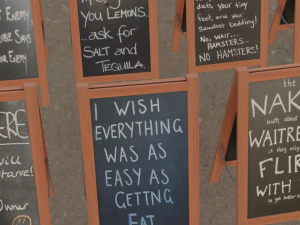 YOU LEMONS.
...ask for
SALT and
TEQUILA.
diets, your tiny
feet, and your
sawdust bedding!
No, WAIT...
HAMSTERS...
NO HAMSTERS!
I WISH
EVERYTHING
WAS AS
EASY AS
GETTNG
FAT
the
NAK
truth about
WAITRE
is they only
FLIR
WITH
to get better